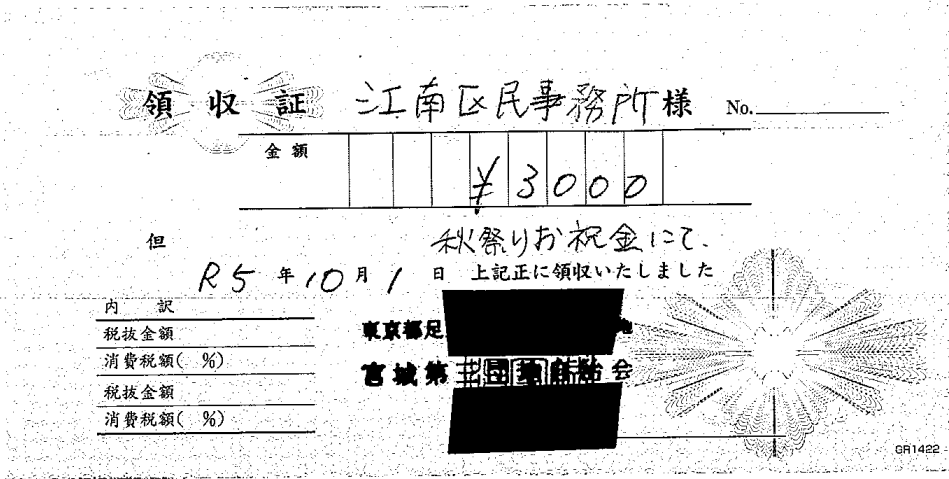 領収証 江南区民事務所様 No.
金額 ¥3000
但 秋祭りお祝金にて.
R5年10月1日 上記正に領収いたしました
内訳
税抜金額
消費税額( %)
税抜金額
消費税額( %)
東京都足
宮城第三団地自治会
GR1422